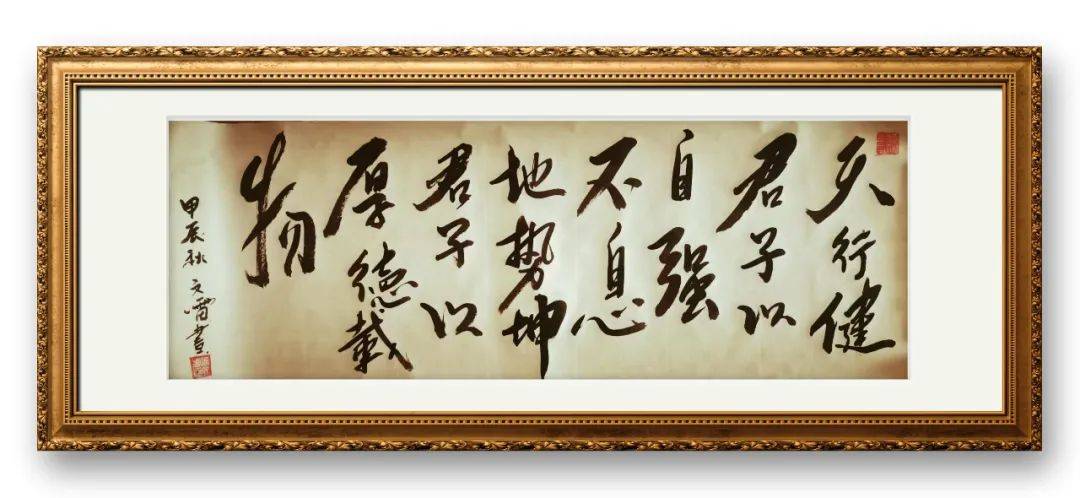 天行健
君子以
自强
不息
地势坤
君子以
厚德载
物
甲辰秋 文雷书